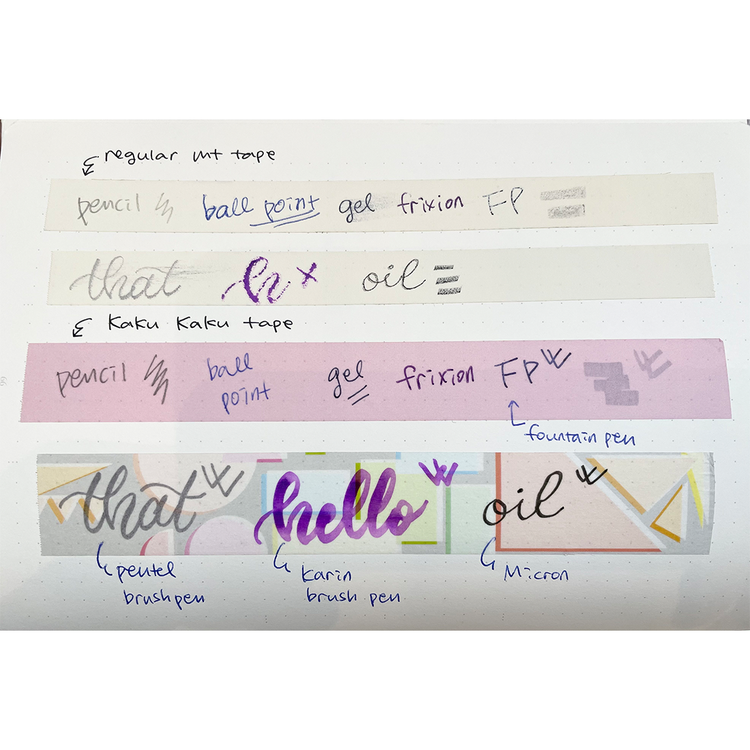 regular mt tape
pencil ball point gel frixion FP
that h x oil
Kaku Kaku tape
pencil ball point gel frixion FP
fountain pen
that hello oil
pentel brush pen
Karin brush pen
Micron